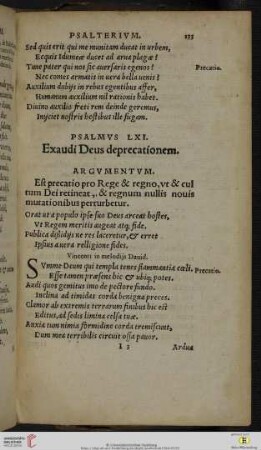 PSALTERIVM. 133
Sed quis erit qui me munitam ducat in urbem,
Ecquis Idumeæ ducet ad arua plagæ?
Tunc pater qui nos sic auersaris egenos? Precatio.
Nec comes armatis in uera bella uenis?
Auxilium dubijs in rebus egentibus affer,
Humanum auxilium nil rationis habet.
Diuino auxilio freti rem deinde geremus,
Inijciet nostris hostibus ille fugam.
PSALMVS LXI.
Exaudi Deus deprecationem.
ARGVMENTVM.
Est precatio pro Rege & regno, ut & cul
tum Dei retineat, & regnum nullis nouis
mutationibus perturbetur.
Orat ut a populo ipse suo Deus arceat hostes,
Vt Regem meritis augeat atq; fide.
Publica dissidijs ne res laceretur, & erret
Ipsius a uera relligione fides.
Vincenti in melodijs Dauid.
SVmme Deum qui templa tenes flammantia cœli, Precatio.
Esse tamen præsens hic & ubiq; potes.
Audi quos gemitus imo de pectore fundo,
Inclina ad timidas corda benigna preces.
Clamor ab extremis terrarum finibus hic est
Editus, ad sedis lumina celsa tuæ.
Anxia tum nimia formidine corda tremiscunt,
Dum mea terribilis circuit ossa pauor.
I 5 Ardua